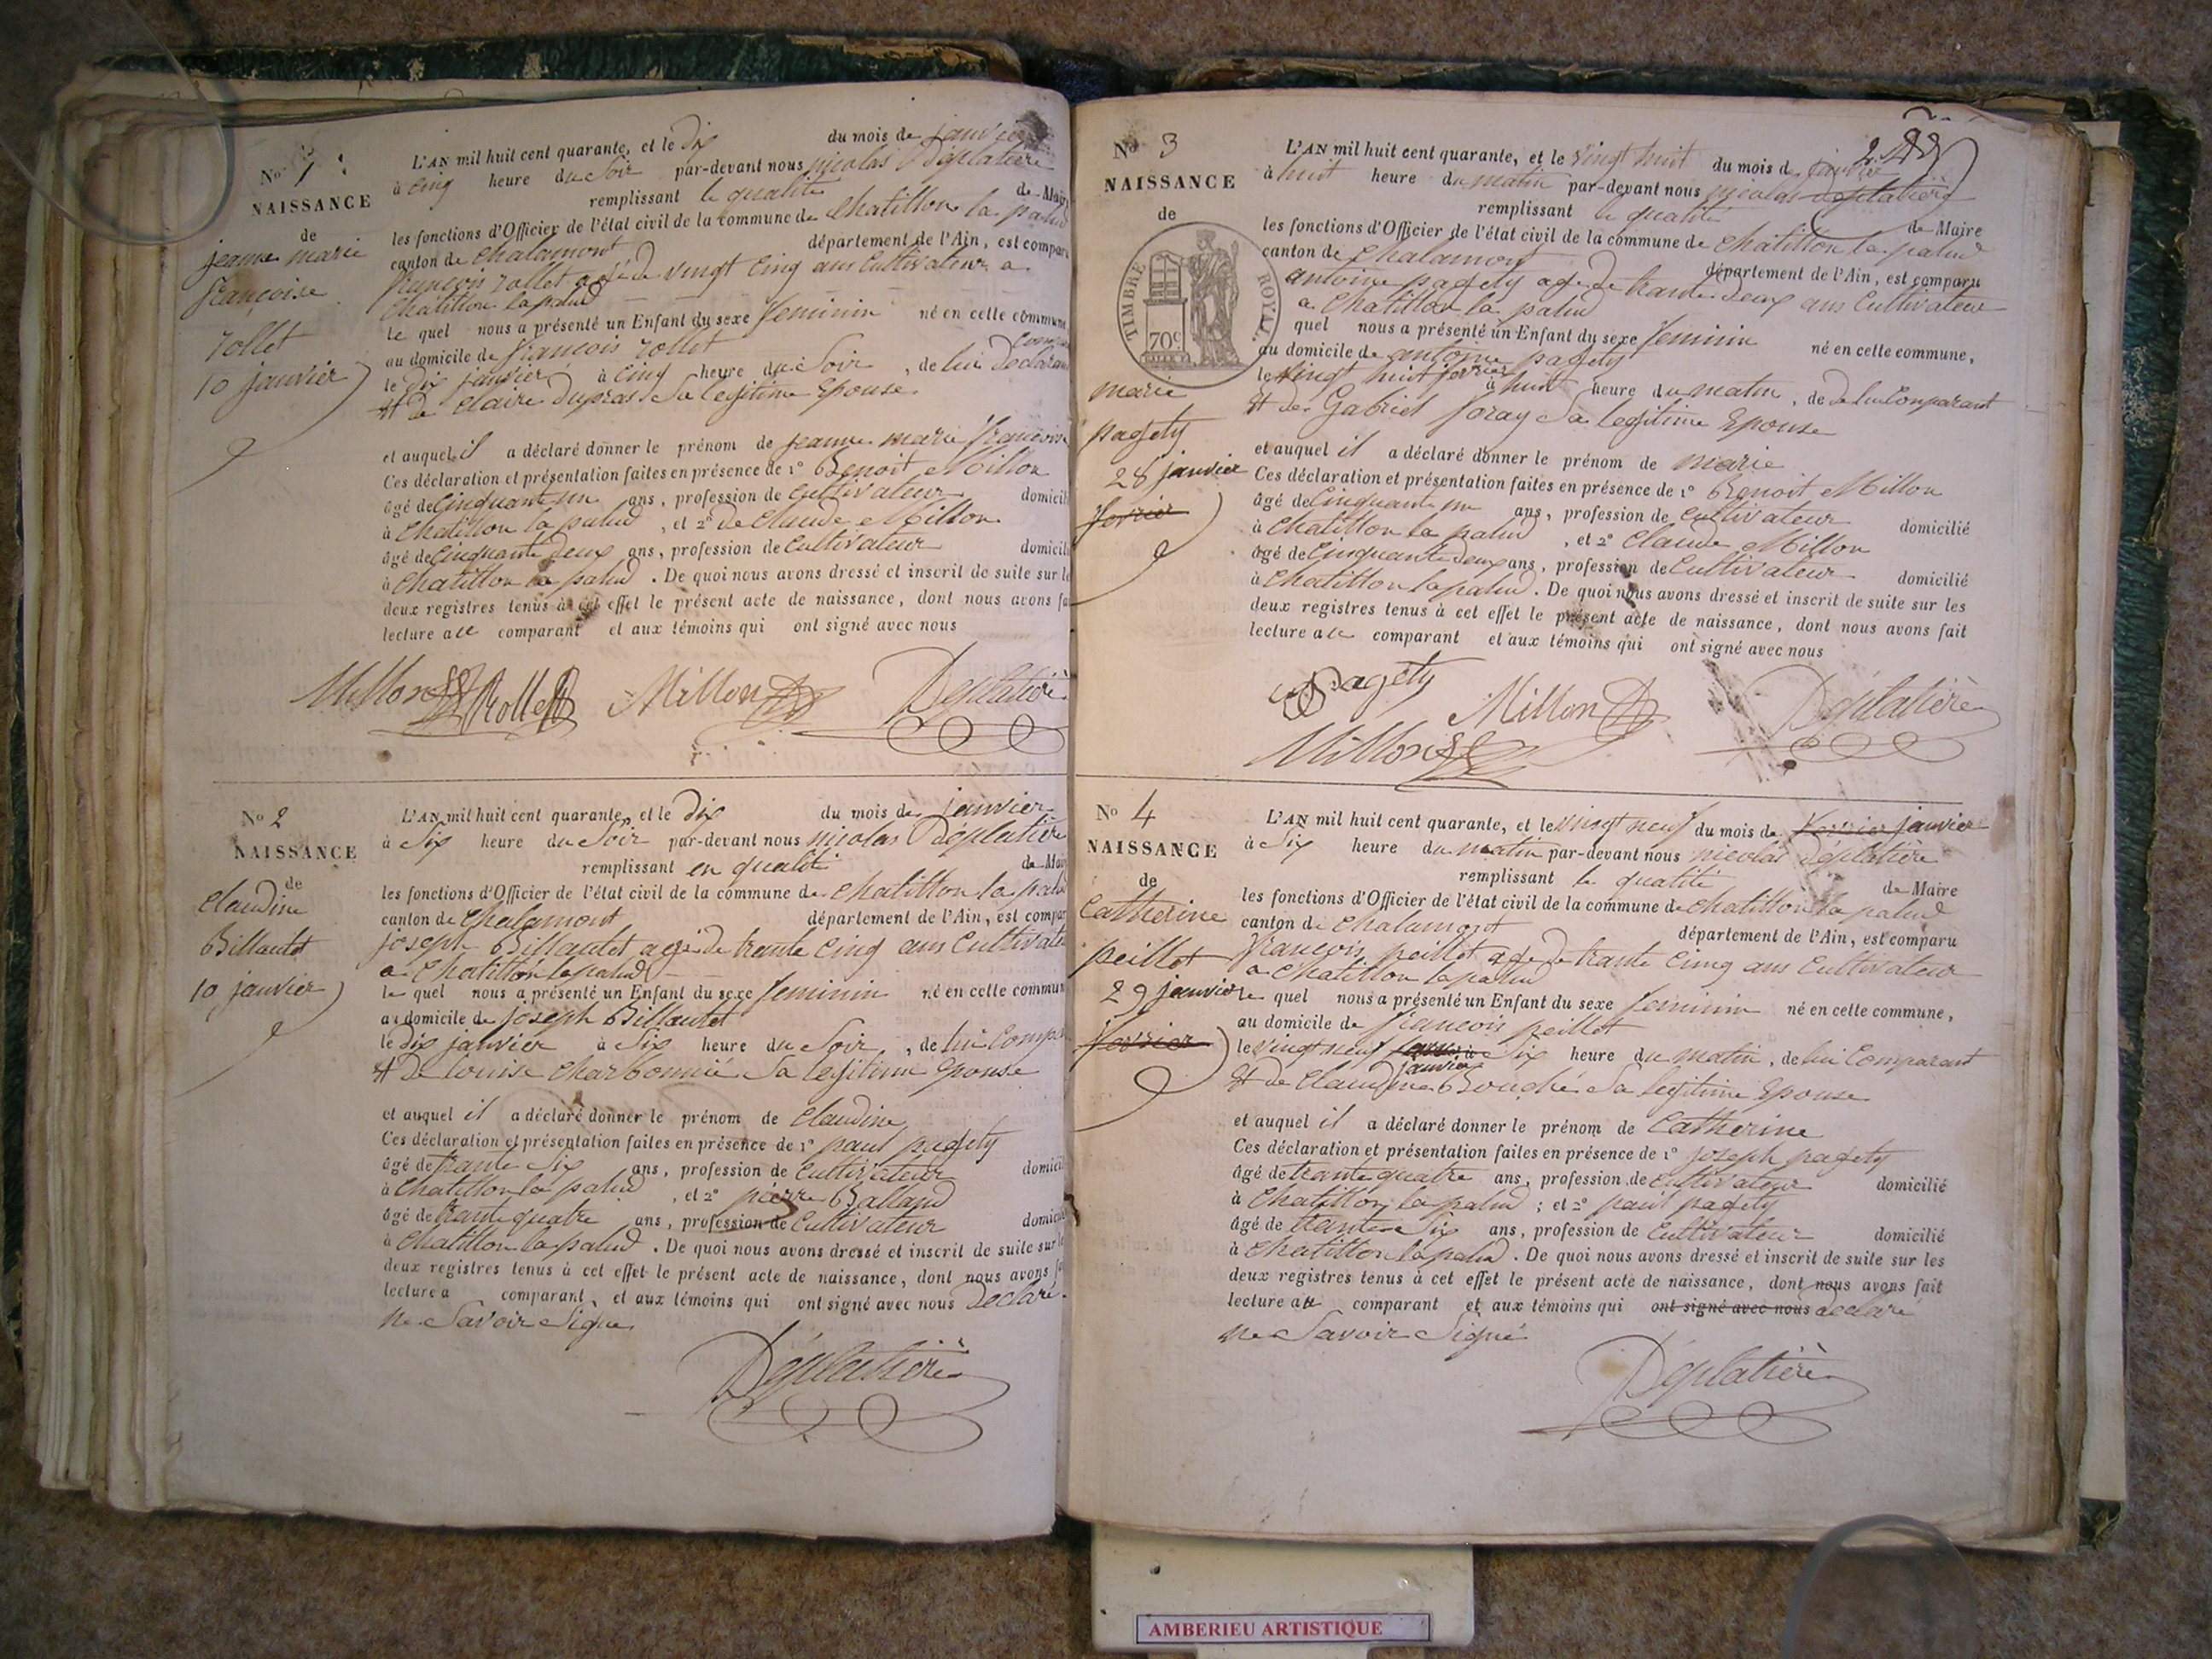 No 1
NAISSANCE
de
jeanne marie
françoise
rollet
10 janvier
L'AN mil huit cent quarante, et le dix du mois de janvier
à cinq heure du soir par-devant nous nicolas Déplatière
remplissant la qualité de Maire
les fonctions d'Officier de l'état civil de la commune de chatillon la palud
canton de chalamont département de l'Ain, est comparu
françois rollet agé de vingt cinq ans cultivateur a
chatillon lapalud
le quel nous a présenté un Enfant du sexe feminin né en cette commune
au domicile de francois rollet
le dix janvier à cinq heure du soir, de lui Déclarant
et de claire dupras sa legitime Epouse
et auquel il a déclaré donner le prénom de jeanne marie françoise
Ces déclaration et présentation faites en présence de 1° Benoit Millon
âgé de cinquant un ans, profession de cultivateur domicili
à chatillon la palud, et 2° de claude Millon
âgé de cinquante deux ans, profession de cultivateur domicili
à chatillon la palud. De quoi nous avons dressé et inscrit de suite sur le
deux registres tenus à cet effet le présent acte de naissance, dont nous avons fa
lecture au comparant et aux témoins qui ont signé avec nous
Millon Rollet Millon Déplatière
No 2
NAISSANCE
de
claudine
Billaudet
10 janvier
L'AN mil huit cent quarante, et le dix du mois de janvier
à six heure du soir par-devant nous nicolas Déplatière
remplissant en qualité de Mair
les fonctions d'Officier de l'état civil de la commune de chatillon la palud
canton de chalamont département de l'Ain, est compar
joseph Billaudet agé de trente cinq ans cultivateu
a chatillon lapalud
le quel nous a présenté un Enfant du sexe feminin né en cette commun
au domicile de joseph Billaudet
le dix janvier à six heure du soir, de lui comp
et de louise charbonnié sa legitime Epouse
et auquel il a déclaré donner le prénom de claudine
Ces déclaration et présentation faites en présence de 1° paul pagety
âgé de trante six ans, profession de cultivateur domicili
à chatillon la palud, et 2° pierre Balland
âgé de trante quatre ans, profession de cultivateur domicil
à chatillon la palud. De quoi nous avons dressé et inscrit de suite sur le
deux registres tenus à cet effet le présent acte de naissance, dont nous avons f
lecture a comparant, et aux témoins qui ont signé avec nous declaré
ne savoir signe
Déplatière
No 3
NAISSANCE
de
TIMBRE ROYAL
70c
marie
pagety
28 janvier
fevrier
L'AN mil huit cent quarante, et le vingt huit du mois de janvier
à huit heure du matin par-devant nous nicolas deplatière
remplissant la qualité de Maire
les fonctions d'Officier de l'état civil de la commune de chatillon la palud
canton de chalamont département de l'Ain, est comparu
antoine pagety age de trante deux ans cultivateur
a chatillon la palud
quel nous a présenté un Enfant du sexe feminin né en cette commune,
au domicile de antoine pagety
le vingt huit fevrier à huit heure du matin, de de lui comparant
et de Gabriel foray sa legitime Epouse
et auquel il a déclaré donner le prénom de marie
Ces déclaration et présentation faites en présence de 1° Benoit Millon
âgé de cinquante un ans, profession de cultivateur domicilié
à chatillon la palud, et 2° claude Millon
âgé de cinquante deux ans, profession de cultivateur domicilié
à chatillon la palud. De quoi nous avons dressé et inscrit de suite sur les
deux registres tenus à cet effet le présent acte de naissance, dont nous avons fait
lecture au comparant et aux témoins qui ont signé avec nous
Pagety Millon Déplatière
Millon
No 4
NAISSANCE
de
catherine
peillot
29 janvier
fevrier
L'AN mil huit cent quarante, et le vingt neuf du mois de fevrier janvier
à six heure du matin par-devant nous nicolas déplatière
remplissant la qualité de Maire
les fonctions d'Officier de l'état civil de la commune de chatillon la palud
canton de chalamont département de l'Ain, est comparu
françois peillot age de trante cinq ans cultivateur
a chatillon lapalud
le quel nous a présenté un Enfant du sexe feminin né en cette commune,
au domicile de francois peillot
le vingt neuf janvier à six heure du matin, de lui comparant
et de claudine Bouché sa legitime Epouse
et auquel il a déclaré donner le prénom de catherine
Ces déclaration et présentation faites en présence de 1° joseph pagety
âgé de trante quatre ans, profession de cultivateur domicilié
à chatillon la palud; et 2° paul pagety
âgé de trante six ans, profession de cultivateur domicilié
à chatillon la palud. De quoi nous avons dressé et inscrit de suite sur les
deux registres tenus à cet effet le présent acte de naissance, dont nous avons fait
lecture au comparant et aux témoins qui ont signé avec nous declaré
ne savoir signé
Déplatière
AMBERIEU ARTISTIQUE